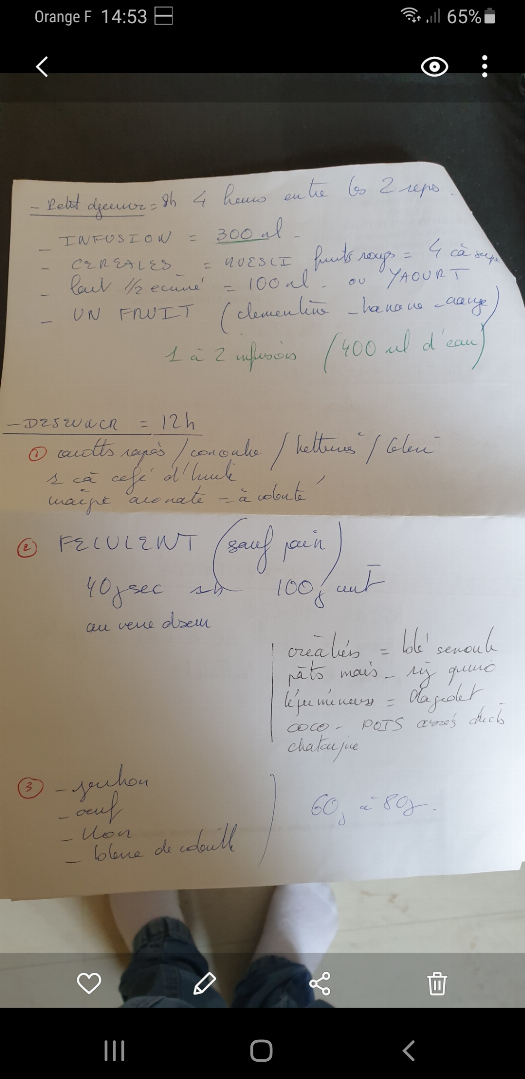 Orange F 14:53 65%
- Petit djeuner = 8h 4 heures entre les 2 repas.
- INFUSION = 300 ml.
- CEREALES = MUESLI fruits rouges = 4 cà soupe
- lait 1/2 écrémé = 100 ml. ou YAOURT
- UN FRUIT (clementine - banane - orange)
1 à 2 infusions (400 ml d'eau)
- DEJEUNER = 12h
① carottes rapés / concombre / betteraves / celeri
1 cà café d'huile
maigre = à volonté
② FECULENT (sauf pain)
40g sec 100g cuit
au verre
céréales = blé semoule
pâtes mais - riz quino
légumineuse = flageolet
coco - POIS cassés
chataigne
③ - jambon
- oeuf
- thon
- blanc de volaille
60g à 80g.